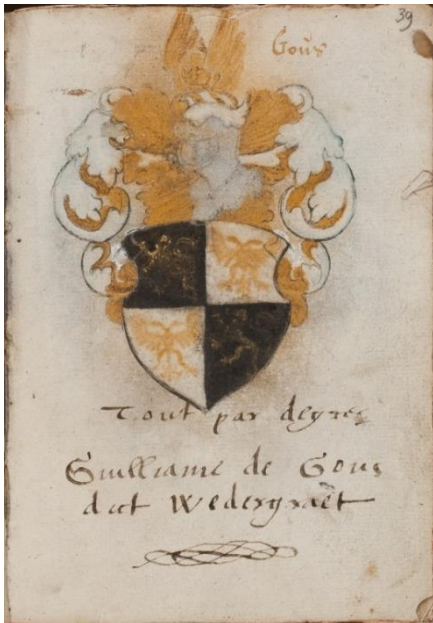 39
Goũs
Tout par degres
Guilliame de Gous
dict Wedergraet